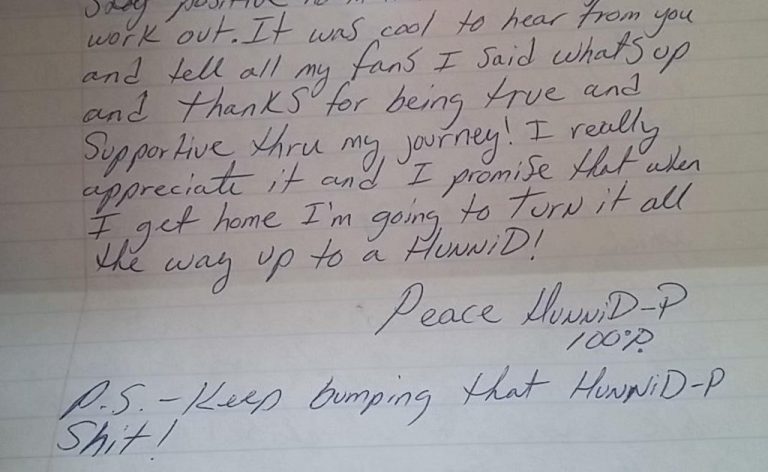 Stay positive
work out. It was cool to hear from you
and tell all my fans I said whats up
and thanks for being true and
Supportive thru my journey! I really
appreciate it and I promise that when
I get home I'm going to Turn it all
the way up to a HUNNiD!
Peace HUNNiD-P
100%P.
P.S.-Keep bumping that HUNNiD-P
Shit!